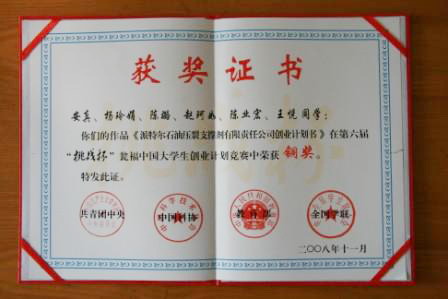 获奖证书
安真、杨玲娟、陈璐、赵珂、陈业宏、王悦同学：
你们的作品《派特尔石油压裂支撑剂有限责任公司创业计划书》在第六届
“挑战杯”瓮福中国大学生创业计划竞赛中荣获 铜奖。
特发此证。
共青团中央 中国科协 教育部 全国学联
二〇〇八年十一月